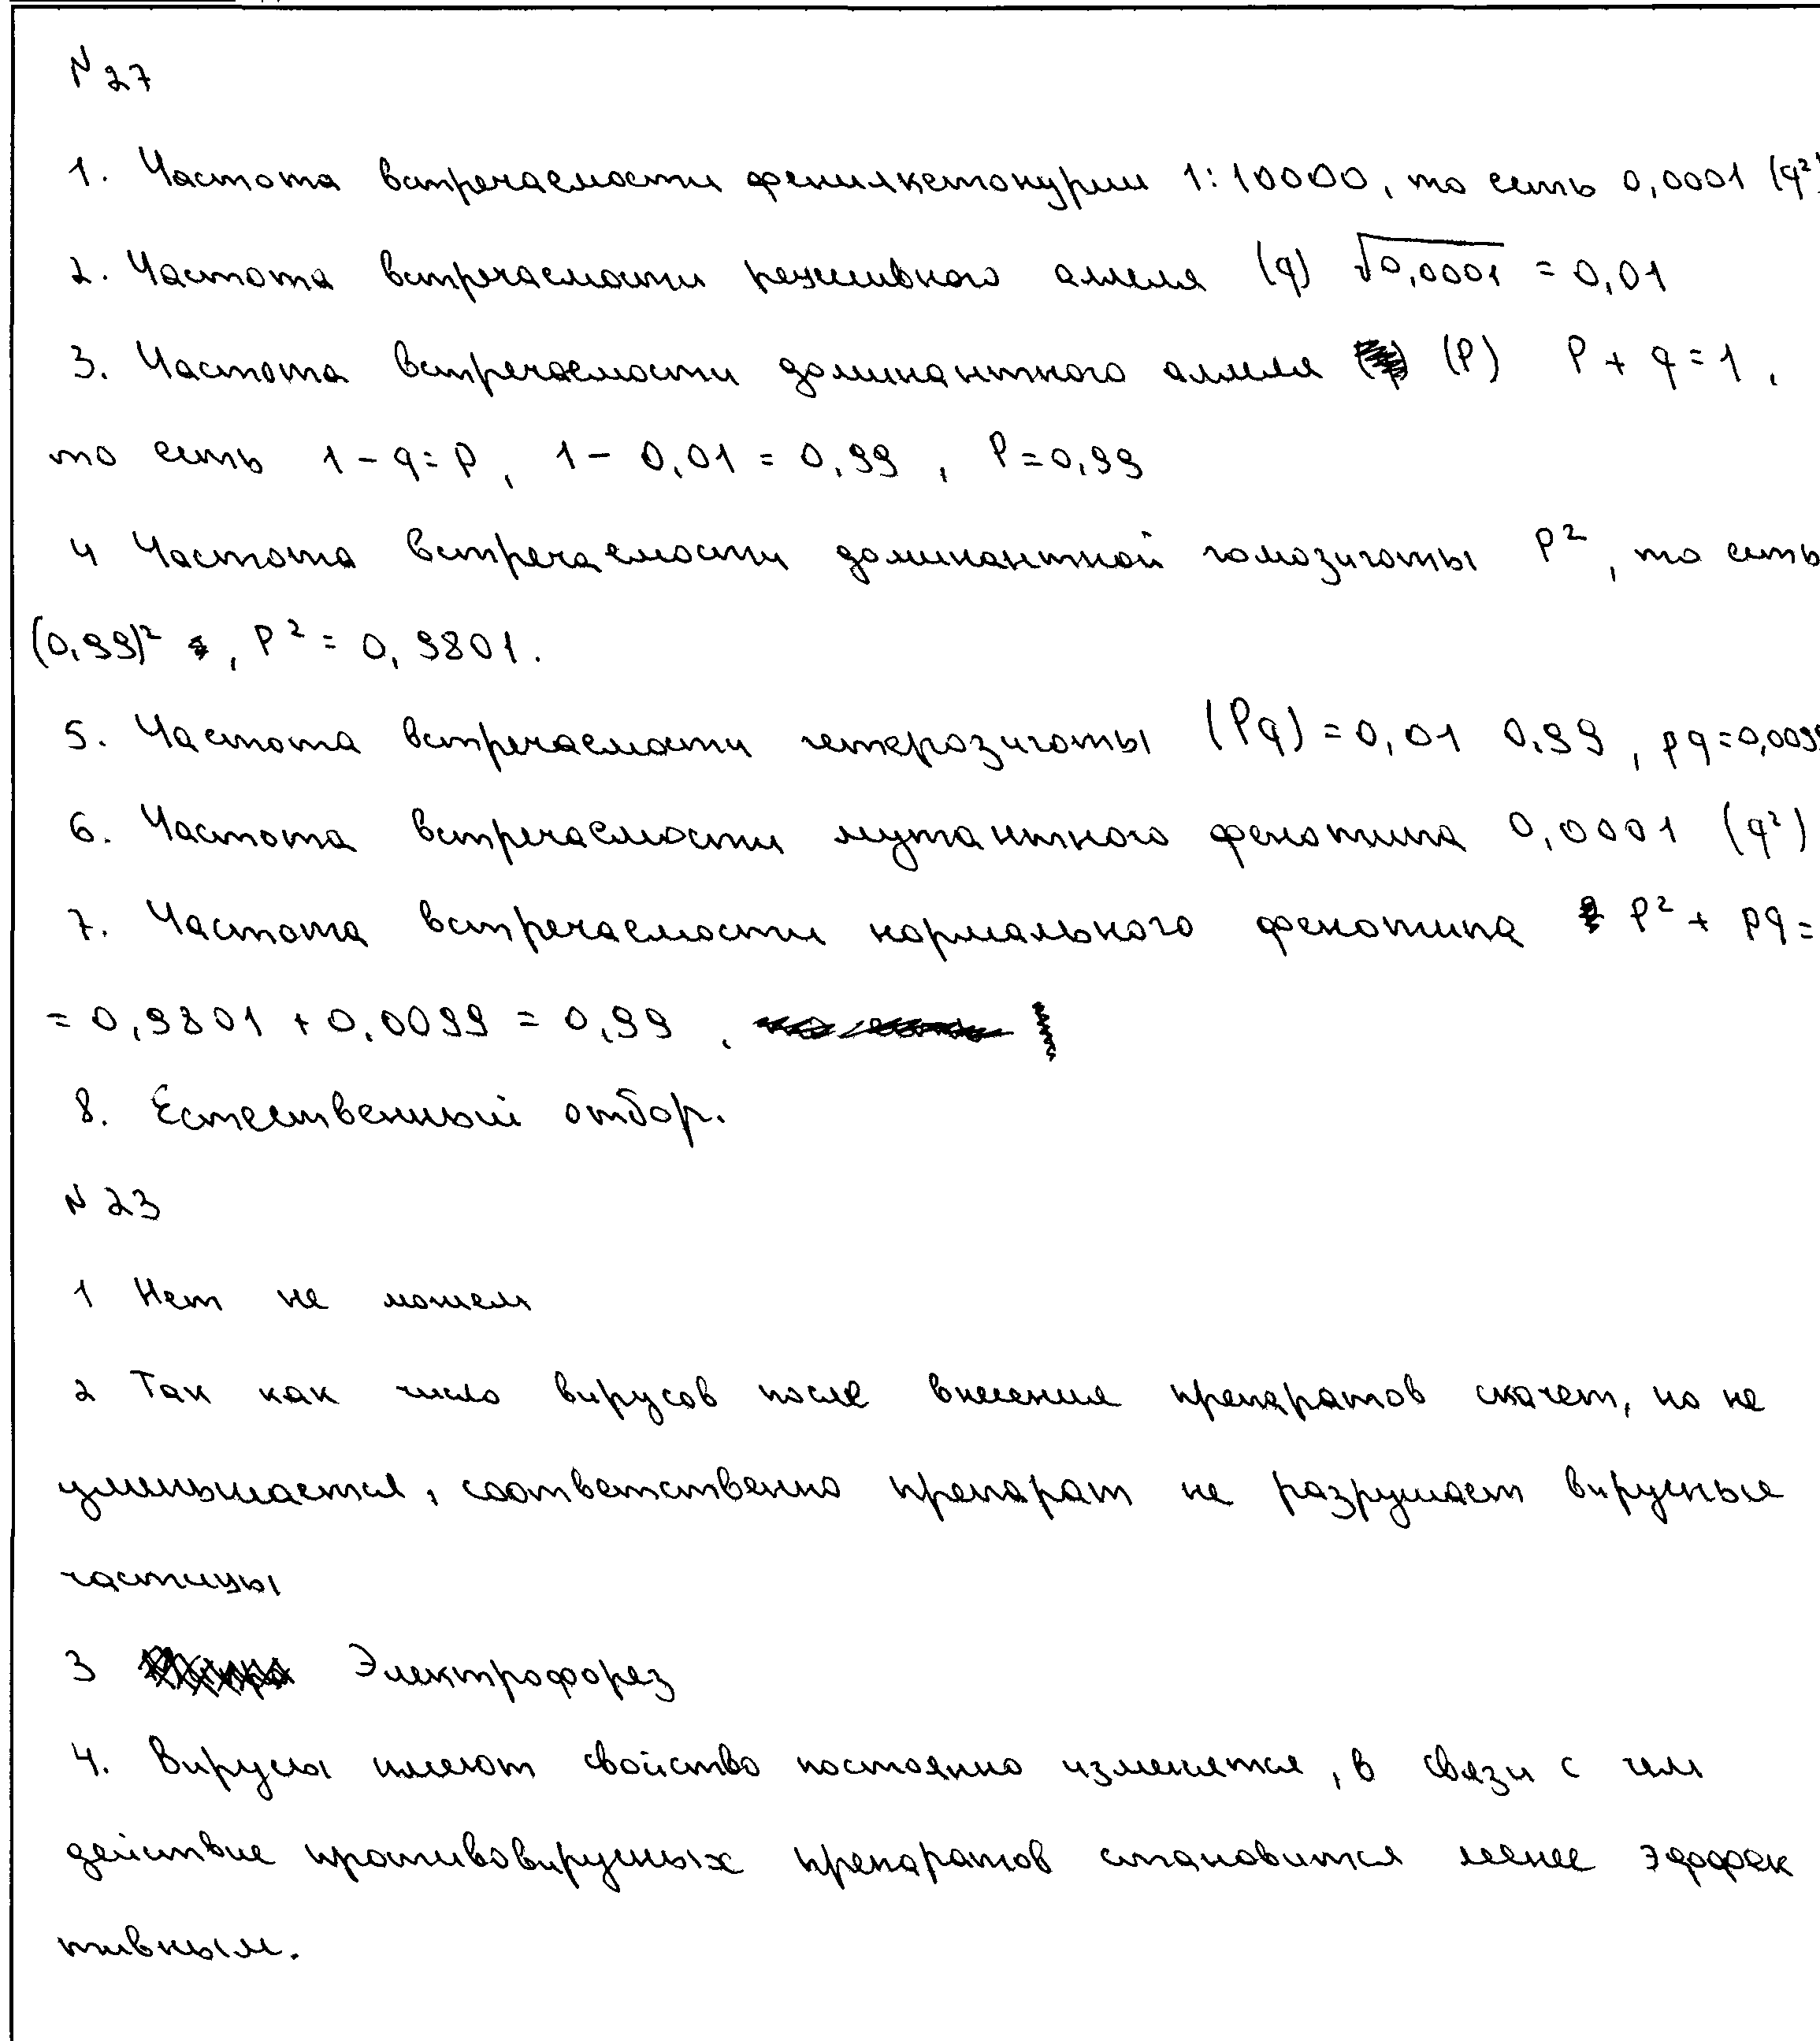 N 27
1. Частота встречаемости фенилкетонурии 1:10000, то есть 0,0001 (q²)
2. Частота встречаемости рецессивного аллеля (q) √0,0001 = 0,01
3. Частота встречаемости доминантного аллеля (P) P + q = 1,
то есть 1 - q = P, 1 - 0,01 = 0,99, P = 0,99
4 Частота встречаемости доминантной гомозиготы P², то есть
(0,99)², P² = 0,9801.
5. Частота встречаемости гетерозиготы (Pq) = 0,01 0,99, pq = 0,0099
6. Частота встречаемости мутантного фенотипа 0,0001 (q²)
7. Частота встречаемости нормального фенотипа P² + pq =
= 0,9801 + 0,0099 = 0,99,
8. Естественный отбор.
N 23
1 Нет не можем
2 Так как число вирусов после внесения препаратов скачет, но не
уменьшается, соответственно препарат не разрушает вирусные
частицы
3 Электрофорез
4. Вирусы имеют свойство постоянно изменятся, в связи с чем
действие противовирусных препаратов становится менее эффек
тивным.